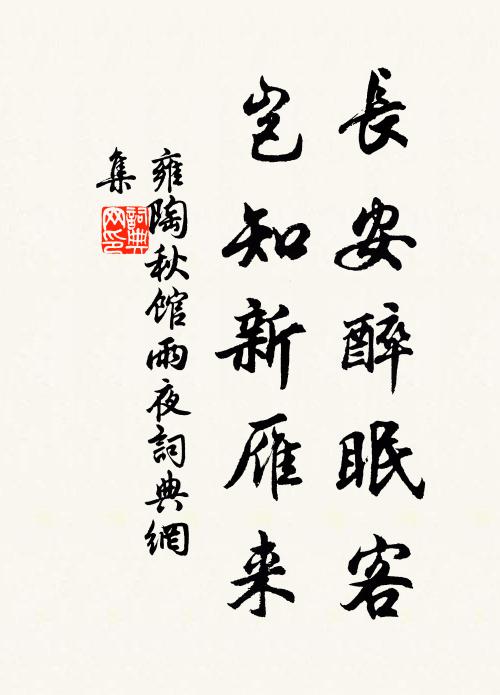 長安醉眠客
豈知新雁来
雍陶秋館雨夜詞典網
集
詞典
网印